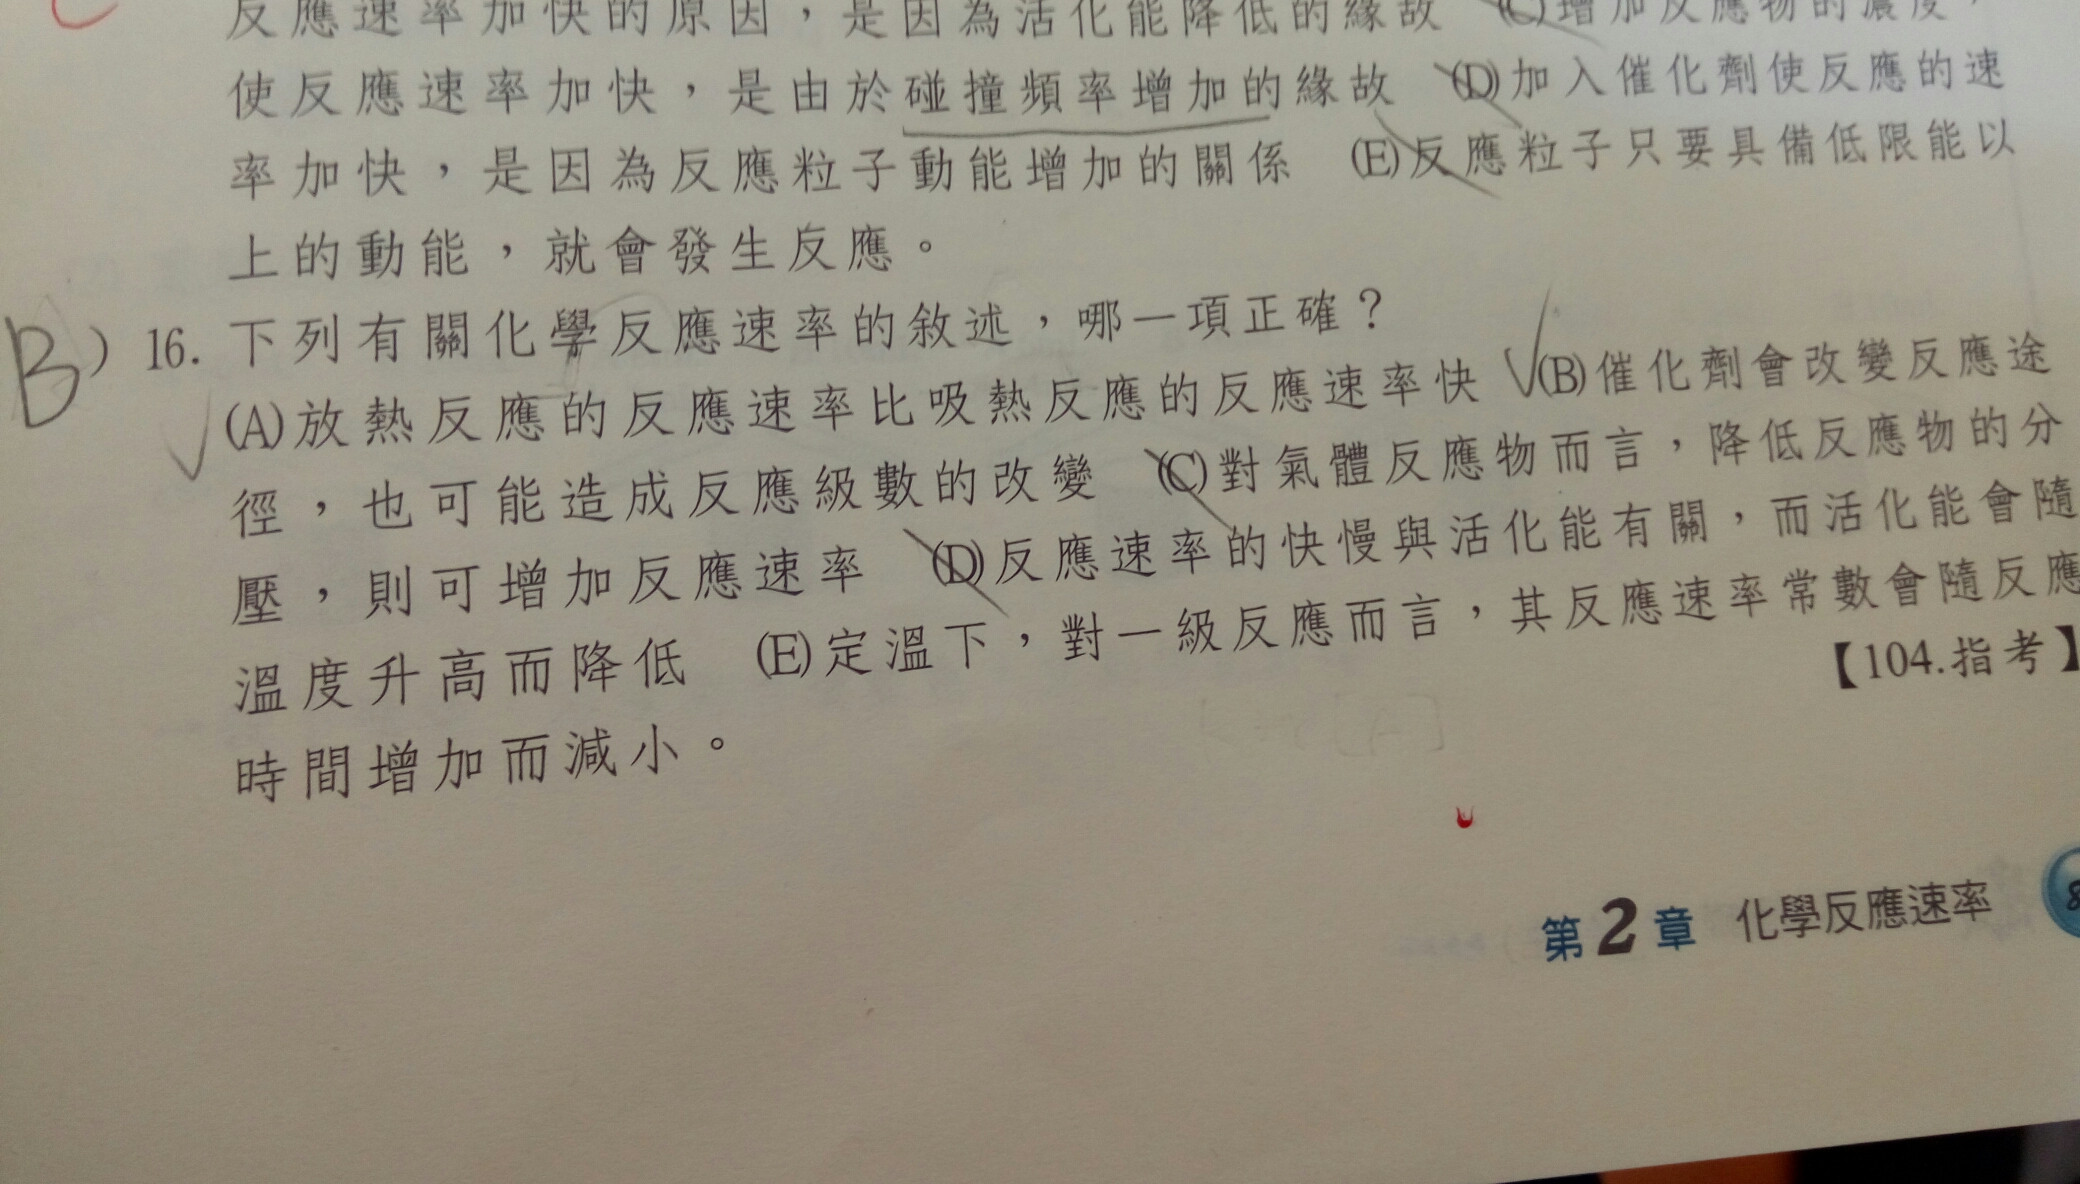 反應速率加快的原因，是因為活化能降低的緣故 (C)增加反應物的濃度，
使反應速率加快，是由於碰撞頻率增加的緣故 (D)加入催化劑使反應的速
率加快，是因為反應粒子動能增加的關係 (E)反應粒子只要具備低限能以
上的動能，就會發生反應。
B) 16. 下列有關化學反應速率的敘述，哪一項正確？
(A)放熱反應的反應速率比吸熱反應的反應速率快 (B)催化劑會改變反應途
徑，也可能造成反應級數的改變 (C)對氣體反應物而言，降低反應物的分
壓，則可增加反應速率 (D)反應速率的快慢與活化能有關，而活化能會隨
溫度升高而降低 (E)定溫下，對一級反應而言，其反應速率常數會隨反應
時間增加而減小。
【104.指考】
第2章 化學反應速率